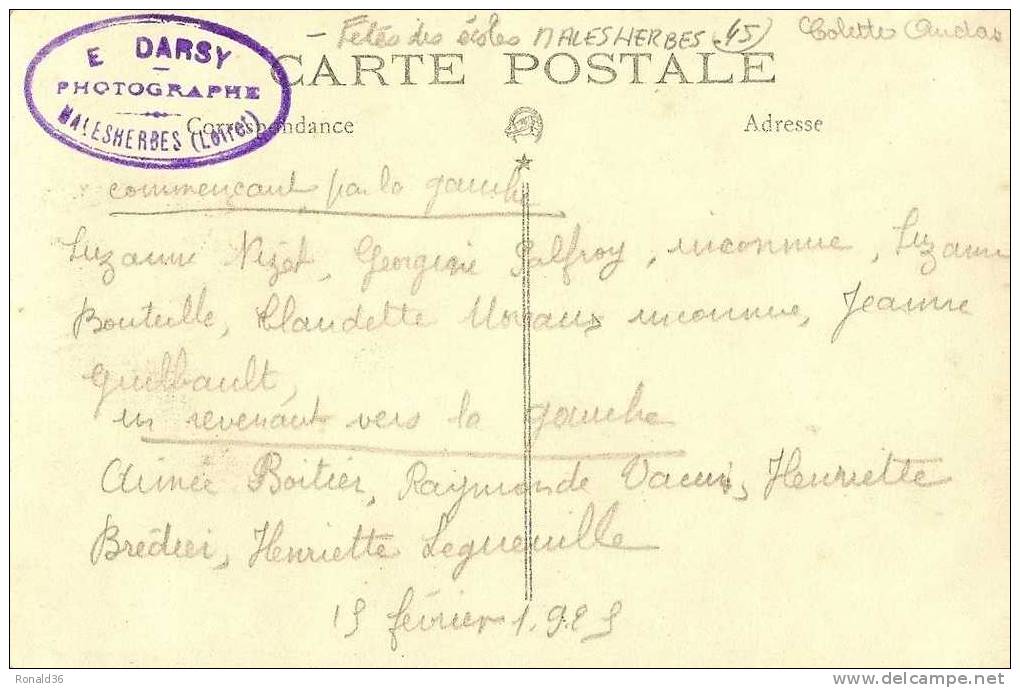 - Fêtes des écoles MALESHERBES (45) Colette
E DARSY
PHOTOGRAPHE
MALESHERBES (Loiret)
CARTE POSTALE
Correspondance
Adresse
commençant par la gauche
Suzanne Nizet, Georgine Palfroy, inconnue, Suzanne
Bouteille, Claudette Moreaux inconnue, Jeanne
Guilbault,
en revenant vers la gauche
Aimée Boitier, Raymonde Henriette
Henriette Legueuille
15 février 1925
Ronald36
www.delcampe.net